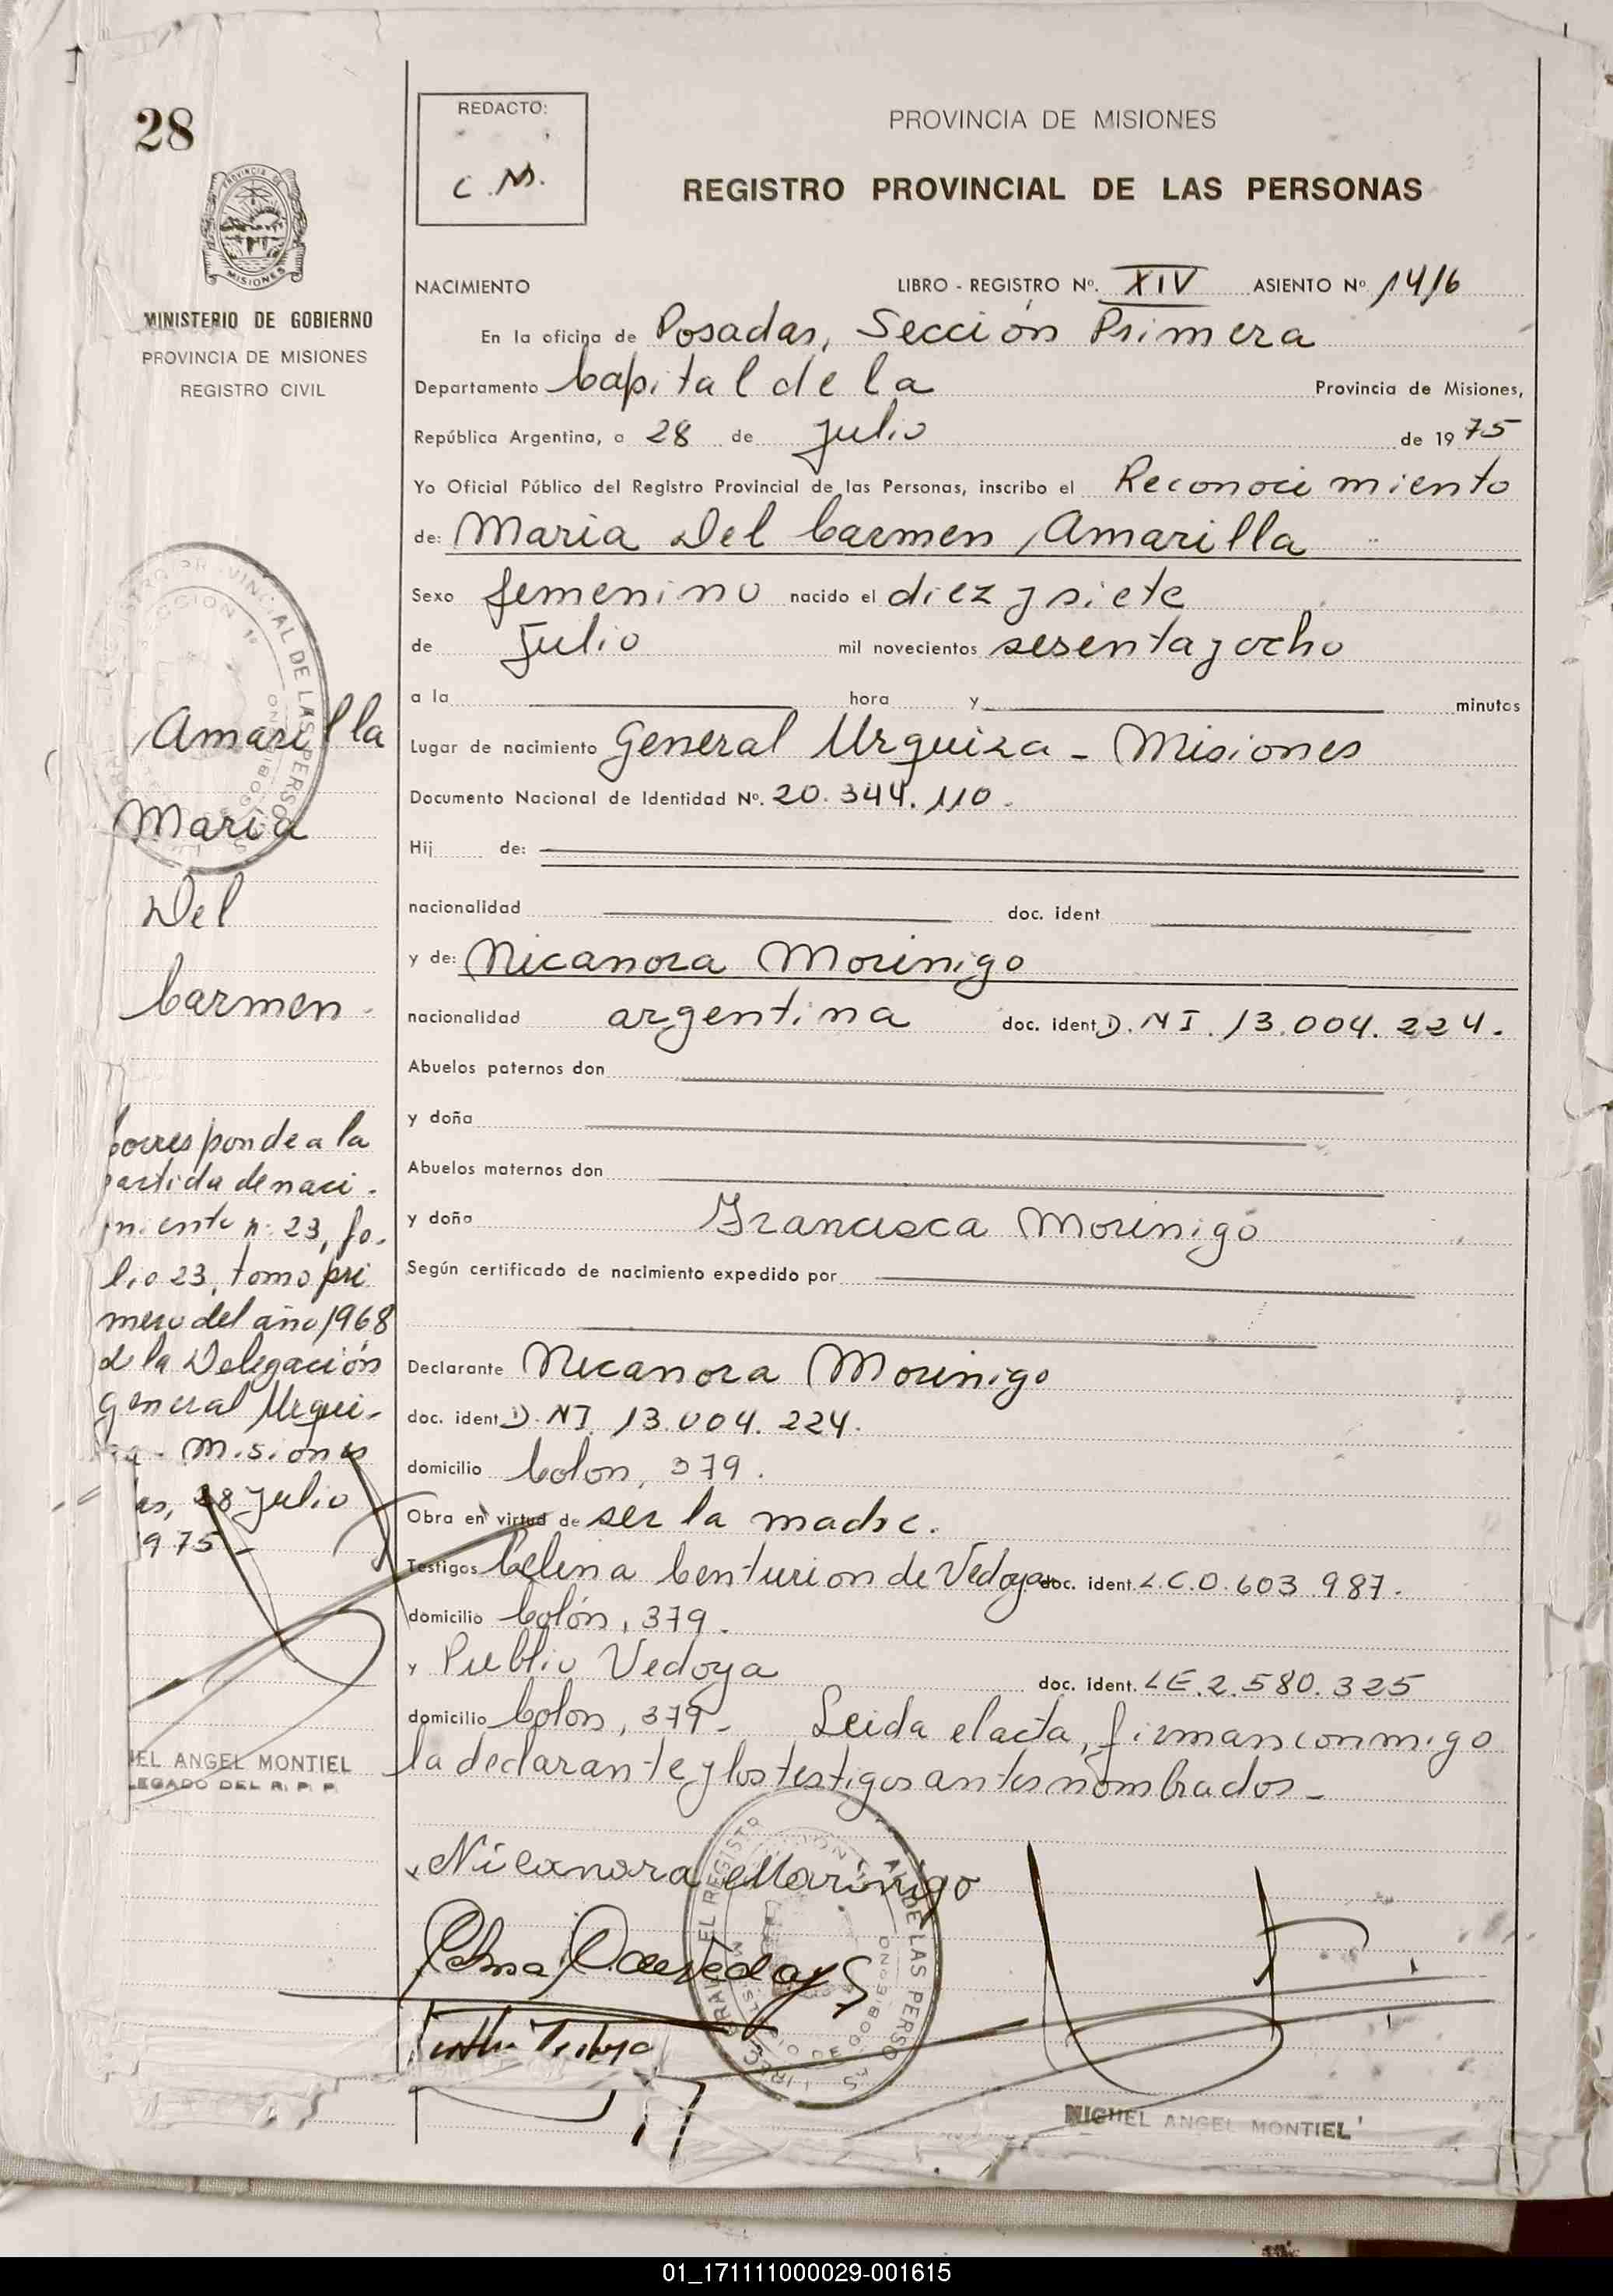 28
REDACTO:
C.M.
PROVINCIA DE MISIONES
REGISTRO PROVINCIAL DE LAS PERSONAS
MISIONES
MINISTERIO DE GOBIERNO
PROVINCIA DE MISIONES
REGISTRO CIVIL
NACIMIENTO LIBRO - REGISTRO Nº. XIV ASIENTO Nº 1416
En la oficina de Posadas, Sección Primera
Departamento Capital de la Provincia de Misiones,
República Argentina, a 28 de Julio de 1975
Yo Oficial Público del Registro Provincial de las Personas, inscribo el Reconocimiento
de: Maria Del Carmen Amarilla
Sexo femenino nacido el diez y siete
de Julio mil novecientos sesenta y ocho
a la hora y minutos
Lugar de nacimiento General Urquiza - Misiones
Documento Nacional de Identidad Nº. 20.344.110.
Hij de:
nacionalidad doc. ident
y de: Nicanora Morinigo
nacionalidad argentina doc. ident D.N I. 13.004.224.
Abuelos paternos don
y doña
Abuelos maternos don
y doña Francisca Morinigo
Según certificado de nacimiento expedido por
Declarante Nicanora Morinigo
doc. ident D.NI. 13.004.224.
domicilio Colon, 379.
Obra en virtud de ser la madre.
Testigos Celina Centurion de Vedoya doc. ident. L.C.0.603.987.
domicilio Colón, 379.
y Publio Vedoya doc. ident. LE.2.580.325
domicilio Colon, 379- Leida el acta, firman conmigo
la declarante y los testigos antes nombrados-
Nicanora Morinigo
MIGUEL ANGEL MONTIEL
Amarilla
Maria
Del
Carmen
Corresponde a la
partida de naci-
miento nº 23, fo-
lio 23, tomo pri
mero del año 1968
de la Delegación
General Urqui-
za - Misiones
as, 28 Julio
1975-
EL ANGEL MONTIEL
LEGADO DEL R. P. P.
01_171111000029-001615